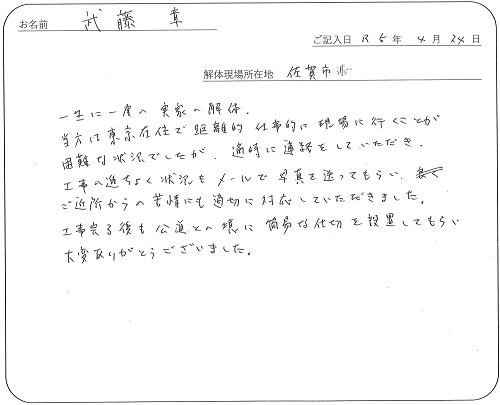 お名前 武藤 章
ご記入日 R5年 4月 24日
解体現場所在地 佐賀市
一生に一度の実家の解体.
当方は東京在住で距離的仕事的に現場に行くことが
困難な状況でしたが、適時に連絡をしていただき、
工事の進ちょく状況もメールで写真を送ってもらい、
ご近所からの苦情にも適切に対応していただきました。
工事完了後も公道との境に簡易な仕切を設置してもらい
大変ありがとうございました。